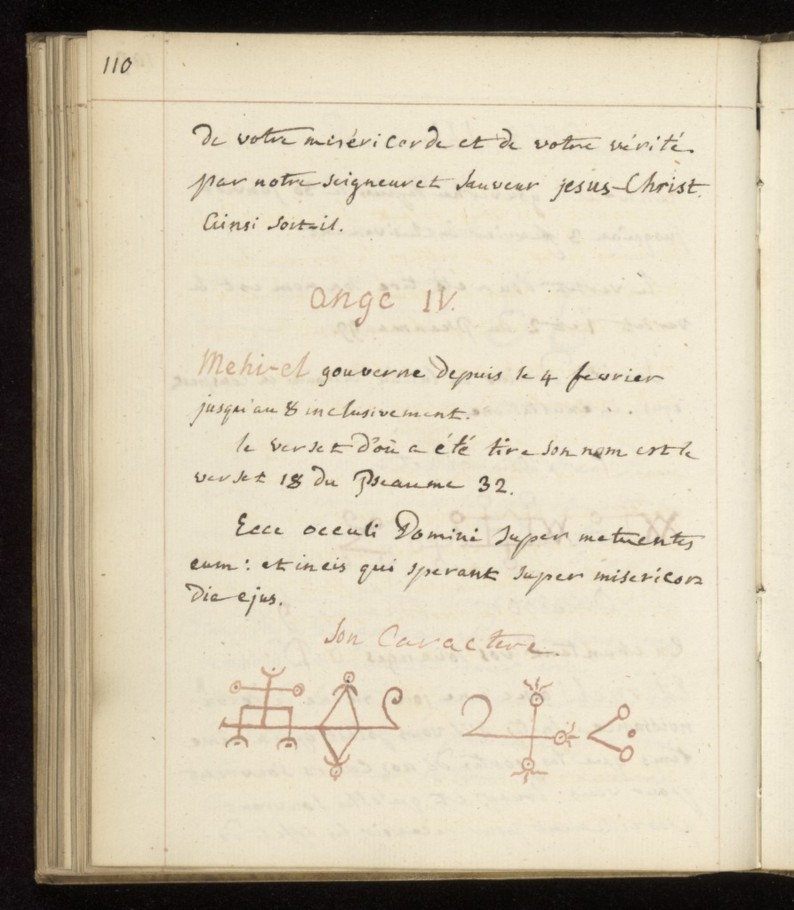 110
de votre miséricorde et de votre vérité
par notre seigneur et sauveur jesus-Christ.
Ainsi soit-il.
Ange IV.
Mehi-el gouverne depuis le 4 fevrier
jusqu'au 8 inclusivement.
le verset d'où a été tire son nom est le
verset 18 du Pseaume 32.
Ecce occuli Domini super metuentes
eum: et in eis qui sperant super misericor=
die ejus.
Son Caractere.